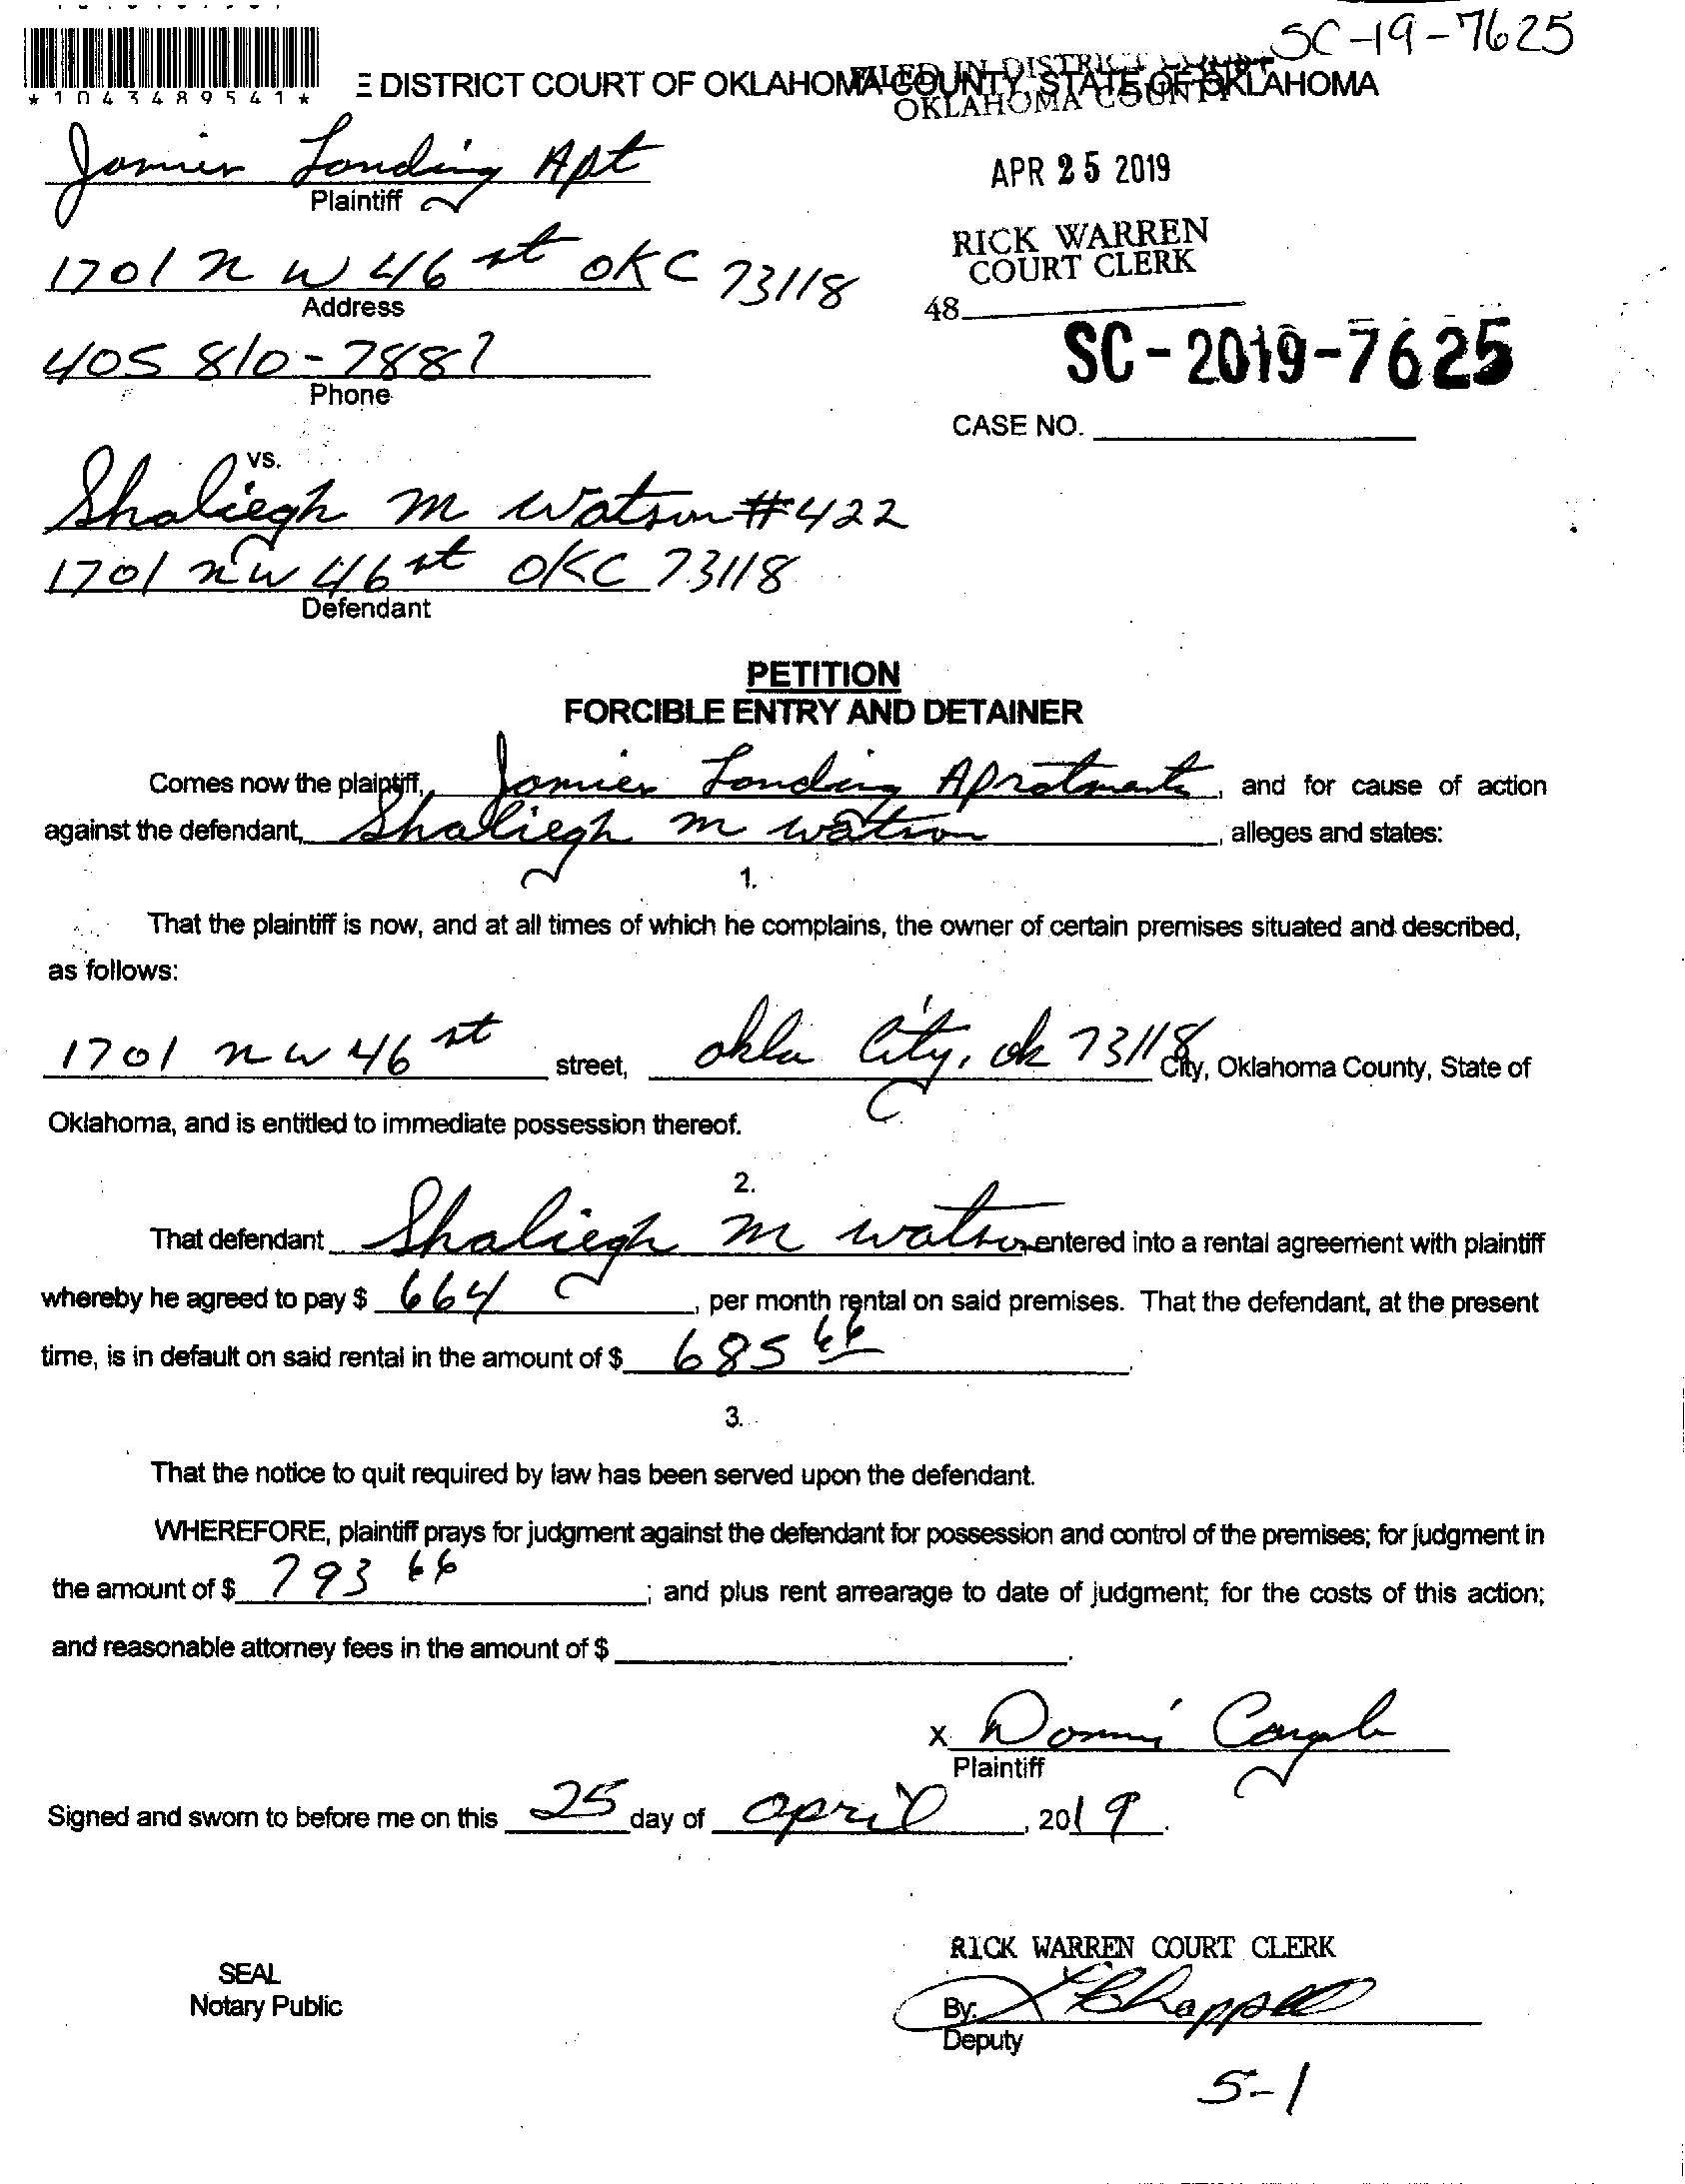 SC-19-7625
*1043489541*
E DISTRICT COURT OF OKLAHOMA COUNTY, STATE OF OKLAHOMA
FILED IN DISTRICT COURT
OKLAHOMA COUNTY
Jamier Landing Apt
Plaintiff
APR 25 2019
1701 n w 46 st OKC 73118
Address
RICK WARREN
COURT CLERK
48
405 810-7887
Phone
SC-2019-7625
CASE NO.
vs.
Shaliegh m watson #422
1701 nw 46 st OKC 73118
Defendant
PETITION
FORCIBLE ENTRY AND DETAINER
Comes now the plaintiff, Jamier Landing Apratments, and for cause of action
against the defendant, Shaliegh m watson, alleges and states:
1.
That the plaintiff is now, and at all times of which he complains, the owner of certain premises situated and described,
as follows:
1701 n w 46 st street, okla City, ok 73118 City, Oklahoma County, State of
Oklahoma, and is entitled to immediate possession thereof.
2.
That defendant Shaliegh m watson entered into a rental agreement with plaintiff
whereby he agreed to pay $ 664, per month rental on said premises. That the defendant, at the present
time, is in default on said rental in the amount of $ 685 66.
3.
That the notice to quit required by law has been served upon the defendant.
WHEREFORE, plaintiff prays for judgment against the defendant for possession and control of the premises; for judgment in
the amount of $ 793 66; and plus rent arrearage to date of judgment; for the costs of this action;
and reasonable attorney fees in the amount of $
X
Plaintiff
Signed and sworn to before me on this 25 day of april, 2019.
RICK WARREN COURT CLERK
SEAL
Notary Public
By: Chappell
Deputy
5-1